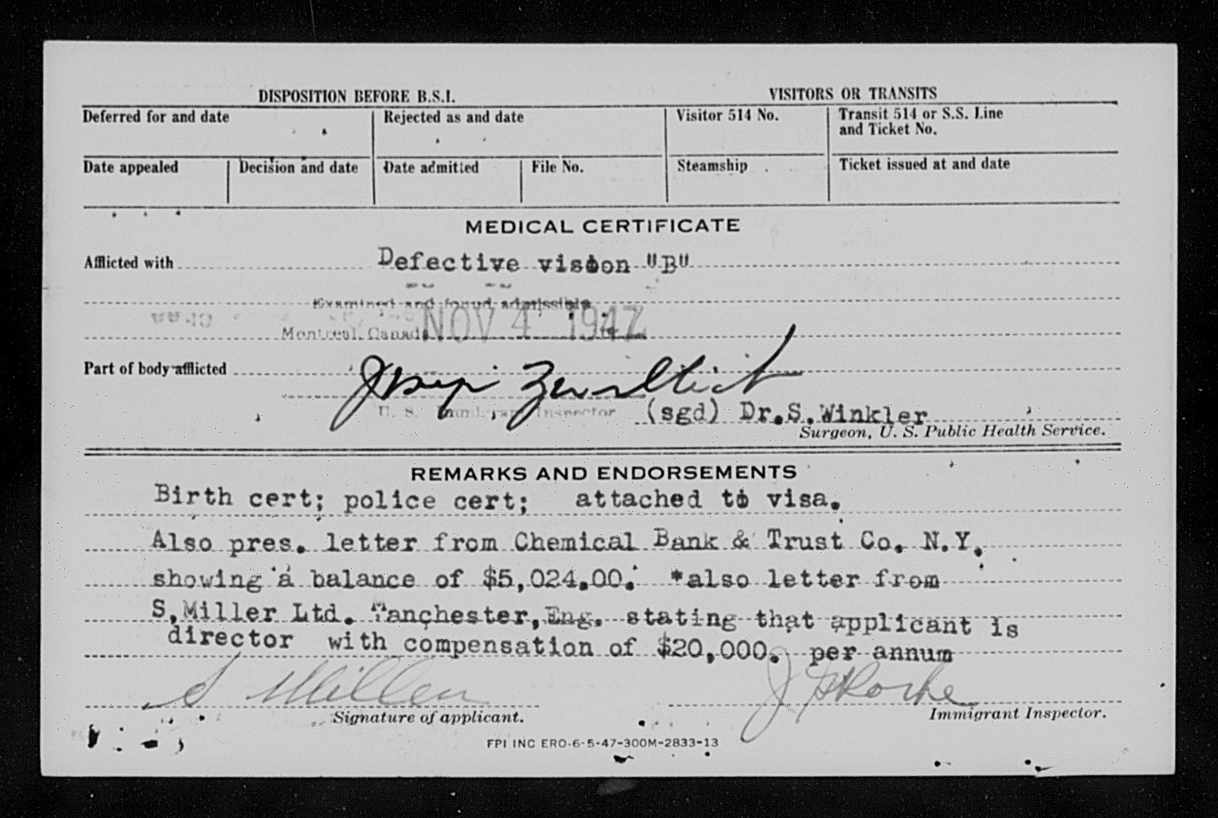 DISPOSITION BEFORE B.S.I. VISITORS OR TRANSITS
Deferred for and date Rejected as and date Visitor 514 No. Transit 514 or S.S. Line
and Ticket No.
Date appealed Decision and date Date admitted File No. Steamship Ticket issued at and date
MEDICAL CERTIFICATE
Afflicted with Defective vision "B"
Examined and found admissible
Montreal, Canada NOV 4 1947
Part of body afflicted
U. S. Immigrant Inspector (sgd) Dr.S.Winkler
Surgeon, U. S. Public Health Service.
REMARKS AND ENDORSEMENTS
Birth cert; police cert; attached to visa.
Also pres. letter from Chemical Bank & Trust Co. N.Y.
showing a balance of $5,024.00. *also letter from
S.Miller Ltd. Manchester,Eng. stating that applicant is
director with compensation of $20,000. per annum
S Miller
Signature of applicant. Immigrant Inspector.
FPI INC ERO-6-5-47-300M-2833-13